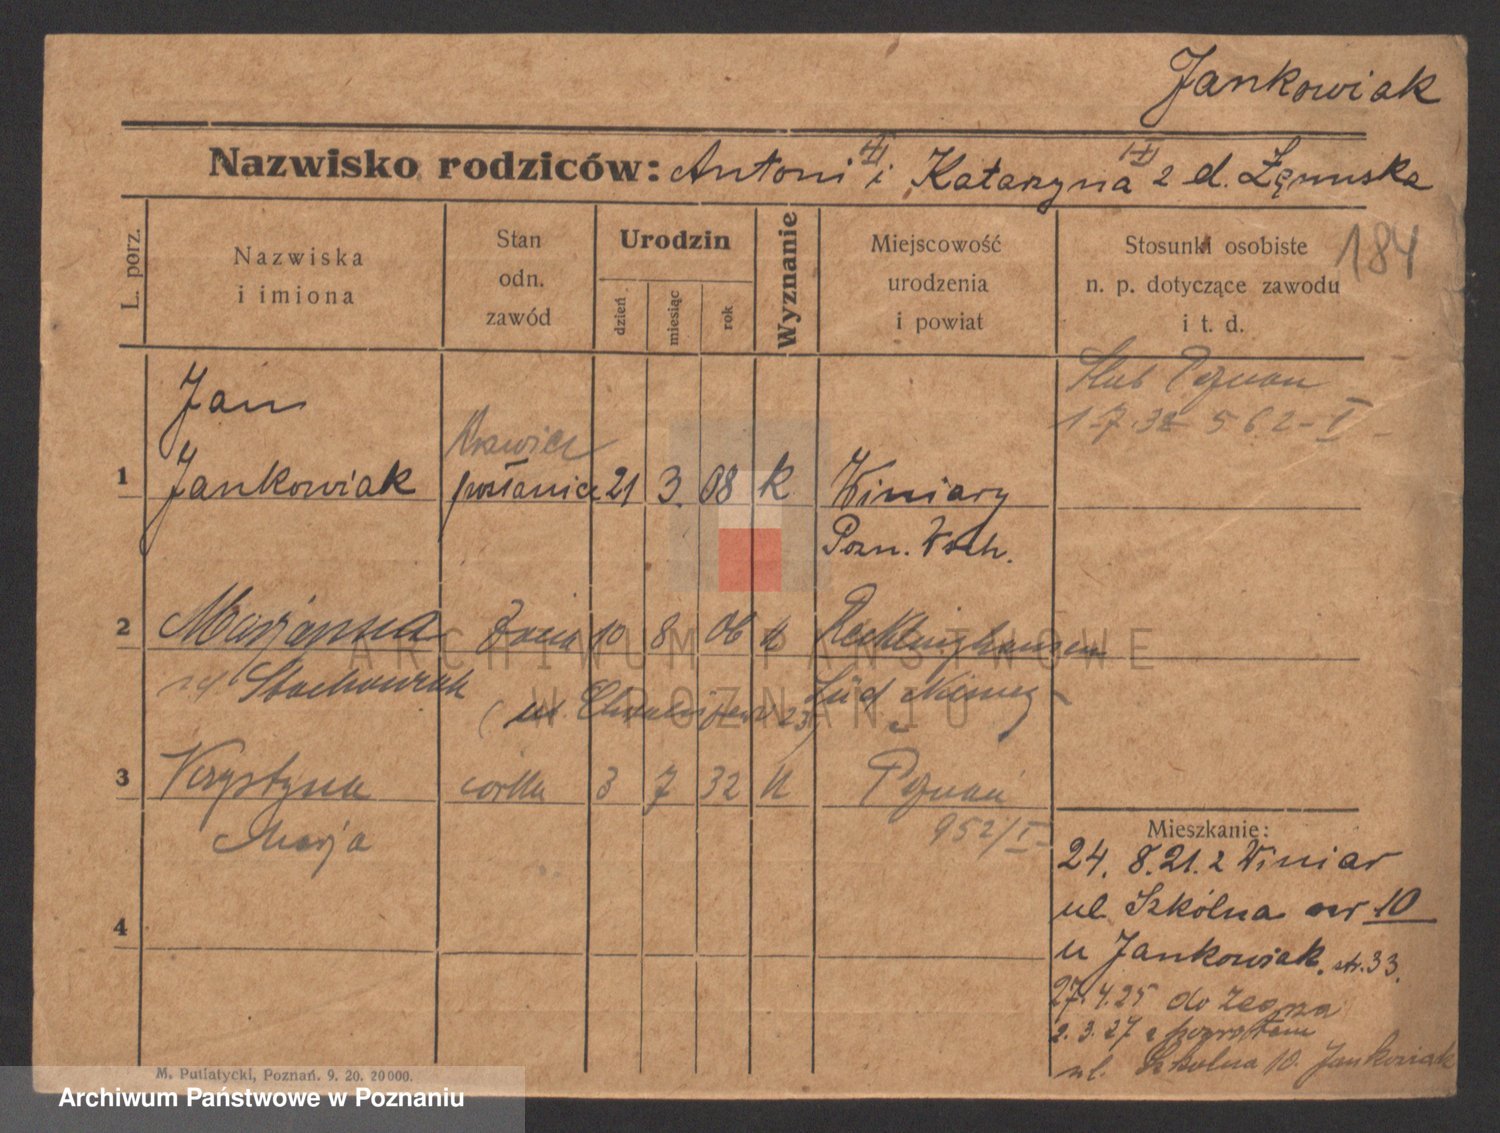 Jankowiak
Nazwisko rodziców: Antoni i Katarzyna z d.
184
L. porz.
Nazwiska
i imiona
Stan
odn.
zawód
Urodzin
dzień
miesiąc
rok
Wyznanie
Miejscowość
urodzenia
i powiat
Stosunki osobiste
n. p. dotyczące zawodu
i t. d.
Ślub Poznań
1-7.32 562-I
Jan
1 Jankowiak posłaniec 21 3. 08 k Winiary
Pozn. Wsch.
2 Marjanna żona 10 8 06 k Recklinghausen
Stachowiak Süd Niemcy
3 Krystyna córka 3 7 32 k Poznań
Marja 952/I
4
Mieszkanie:
24. 8.21. z Winiar
ul. Szkólna nr 10
u Jankowiak. str. 33.
27.4.25 do
2.3.27 z powrotem
ul. Szkolna 10. Jankowiak
M. Putiatycki, Poznań. 9. 20. 20000.
ARCHIWUM PAŃSTWOWE
W POZNANIU
Archiwum Państwowe w Poznaniu